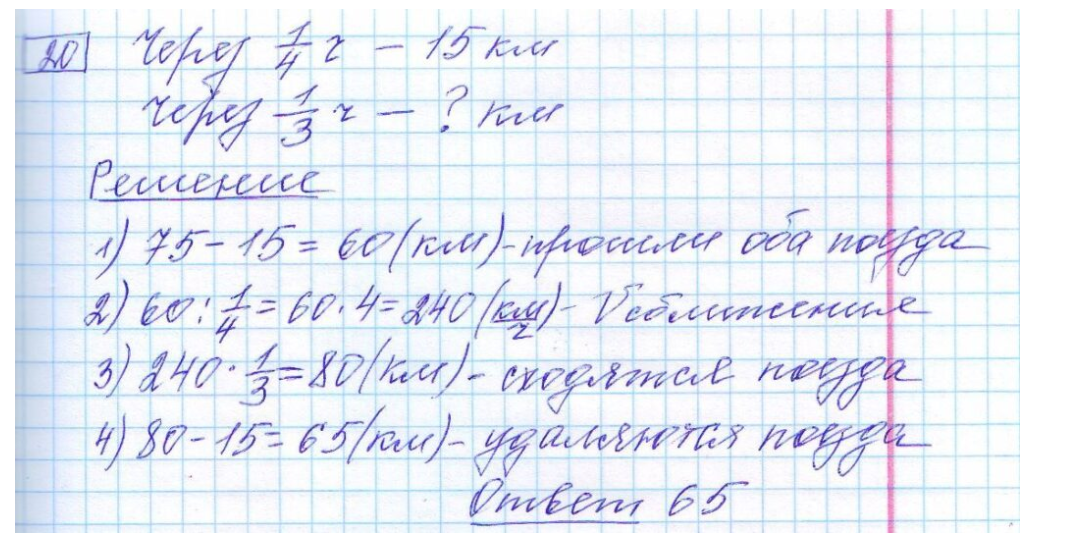 20 Через 1/4 ч – 15 км
Через 1/3 ч – ? км
Решение
1) 75 - 15 = 60 (км) - прошли оба поезда
2) 60 : 1/4 = 60 · 4 = 240 (км/ч) - V сближения
3) 240 · 1/3 = 80 (км) - сходятся поезда
4) 80 - 15 = 65 (км) - удаляются поезда
Ответ 65